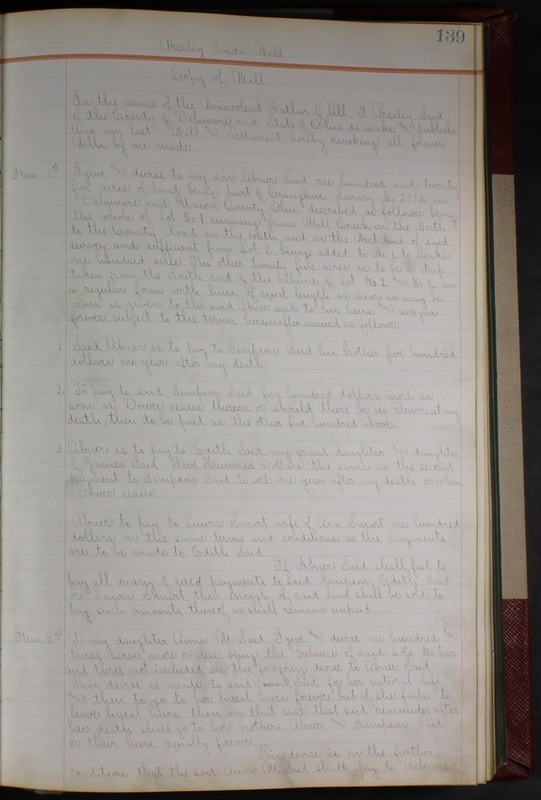 139
Presley Said's Will
Copy of Will
In the name of the Benevolent Father of All. I Presley Said
of the County of Delaware and State of Ohio do make and publish
this my last Will & Testament hereby revoking all former
Wills by me made.
Item 1st I give and devise to my son Abner Said one hundred and twenty
five acres of land being part of Survey No 2992 in
Delaware and Union County Ohio described as follows: being
the whole of Lot No 1. running from Mill Creek on the North
to the County Road on the south and on the West line of said
survey and sufficient from Lot 2. being added to No 1. to make
one hundred acres. The other twenty five acres is to be a strip
taken from the South end of the balance of Lot No 2 and No 3, in
a regular form with lines of equal length as near as may be
is given to the said Abner and to his heirs and assigns
forever, subject to the terms hereinafter as follows:
1. Said Abner is to pay to Simpson Said his brother five hundred
dollars one year after my death.
2. To pay to said Simpson Said five hundred dollars more as
soon as Dower ceases thereon or should there be no Dower at my
death, then to be paid as the other five hundred above.
3. Abner is to pay to Edith Said my grand daughter and daughter
of James Said Five Hundred Dollars the same as the second
payment to Simpson Said to wit one year after my death or when
Dower cease.
Abner to pay to Laura Smart wife of Asa Smart one hundred
dollars on the same terms and conditions as the payments
are to be made to Edith Said.
If Abner Said shall fail to
pay all or any of said payments to said Simpson, Edith Said
or Laura Smart then enough of said land shall be sold to
pay such amounts thereof as shall remain unpaid.
Item 2nd To my daughter Anna M. Said I give and devise one hundred and
three acres more or less being the balance of said Lots No two
and three not included in the foregoing devise to Abner Said
This devise is made to said Said for her natural life
and then to go to her lineal heirs forever but if she fails to
leave lineal heirs then in that case that said remainder after
her death shall go to her brothers Abner and Simpson Said
or their heirs equally forever.
This devise is on the further
condition that the said Anna M. Said shall pay to